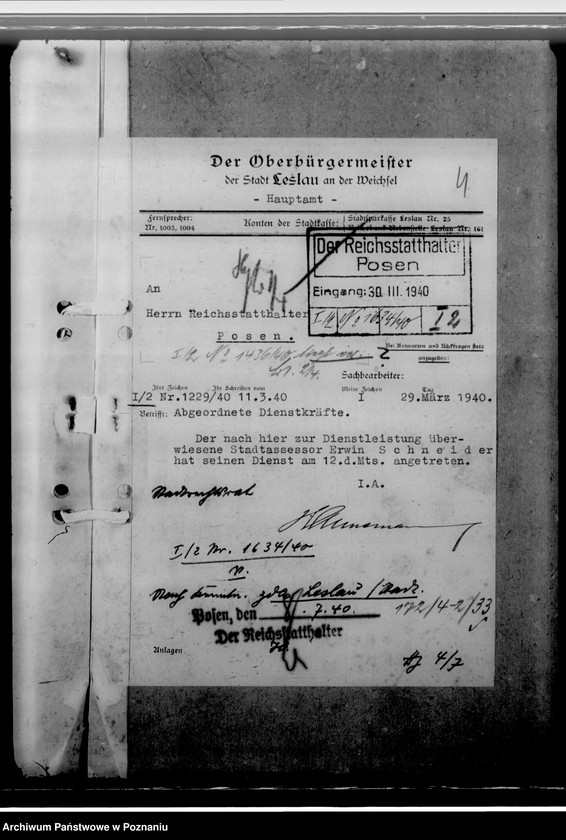 Der Oberbürgermeister
der Stadt Leslau an der Weichsel
- Hauptamt -
4
Fernsprecher:
Nr. 1003, 1004
Konten der Stadtkasse:
Stadtsparkasse Leslau Nr. 25
Leslau Nr. 161
Der Reichsstatthalter
Posen
Eingang: 30. III. 1940
I/2 No 1634/40 I 2
An
Herrn Reichsstatthalter
Posen.
I/2 No 1436/40
Bei Antworten und Rückfragen stets
anzugeben:
Sachbearbeiter:
Ihre Zeichen Ihr Schreiben vom Meine Zeichen Tag
I/2 Nr.1229/40 11.3.40 I 29.März 1940.
Betrifft: Abgeordnete Dienstkräfte.
Der nach hier zur Dienstleistung über-
wiesene Stadtassessor Erwin S c h n e i d e r
hat seinen Dienst am 12.d.Mts. angetreten.
I.A.
Stadtrechtsrat
I/2 Nr. 1634/40
v.
zdA Leslau / Stadt.
172/4-2/33
Posen, den 7.40.
Der Reichsstatthalter
Anlagen
4/7